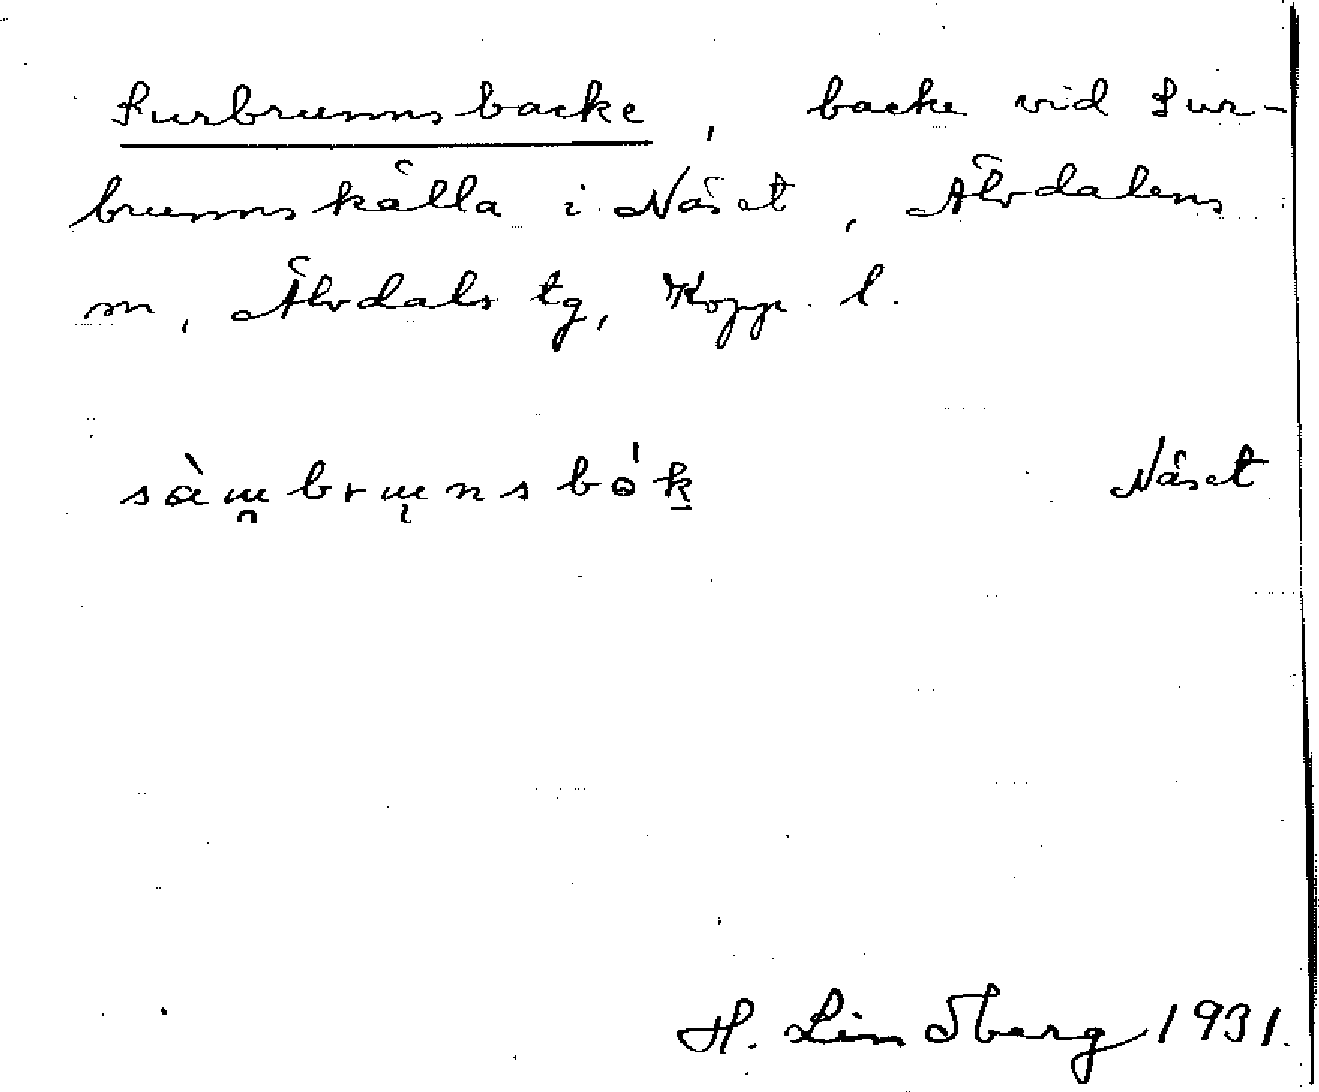 Surbrunnsbacke, backe vid Sur-
brunnskälla i Näset, Älvdalens
sn, Älvdals tg, Kopp. l.
Näset
H. Lindberg 1931.